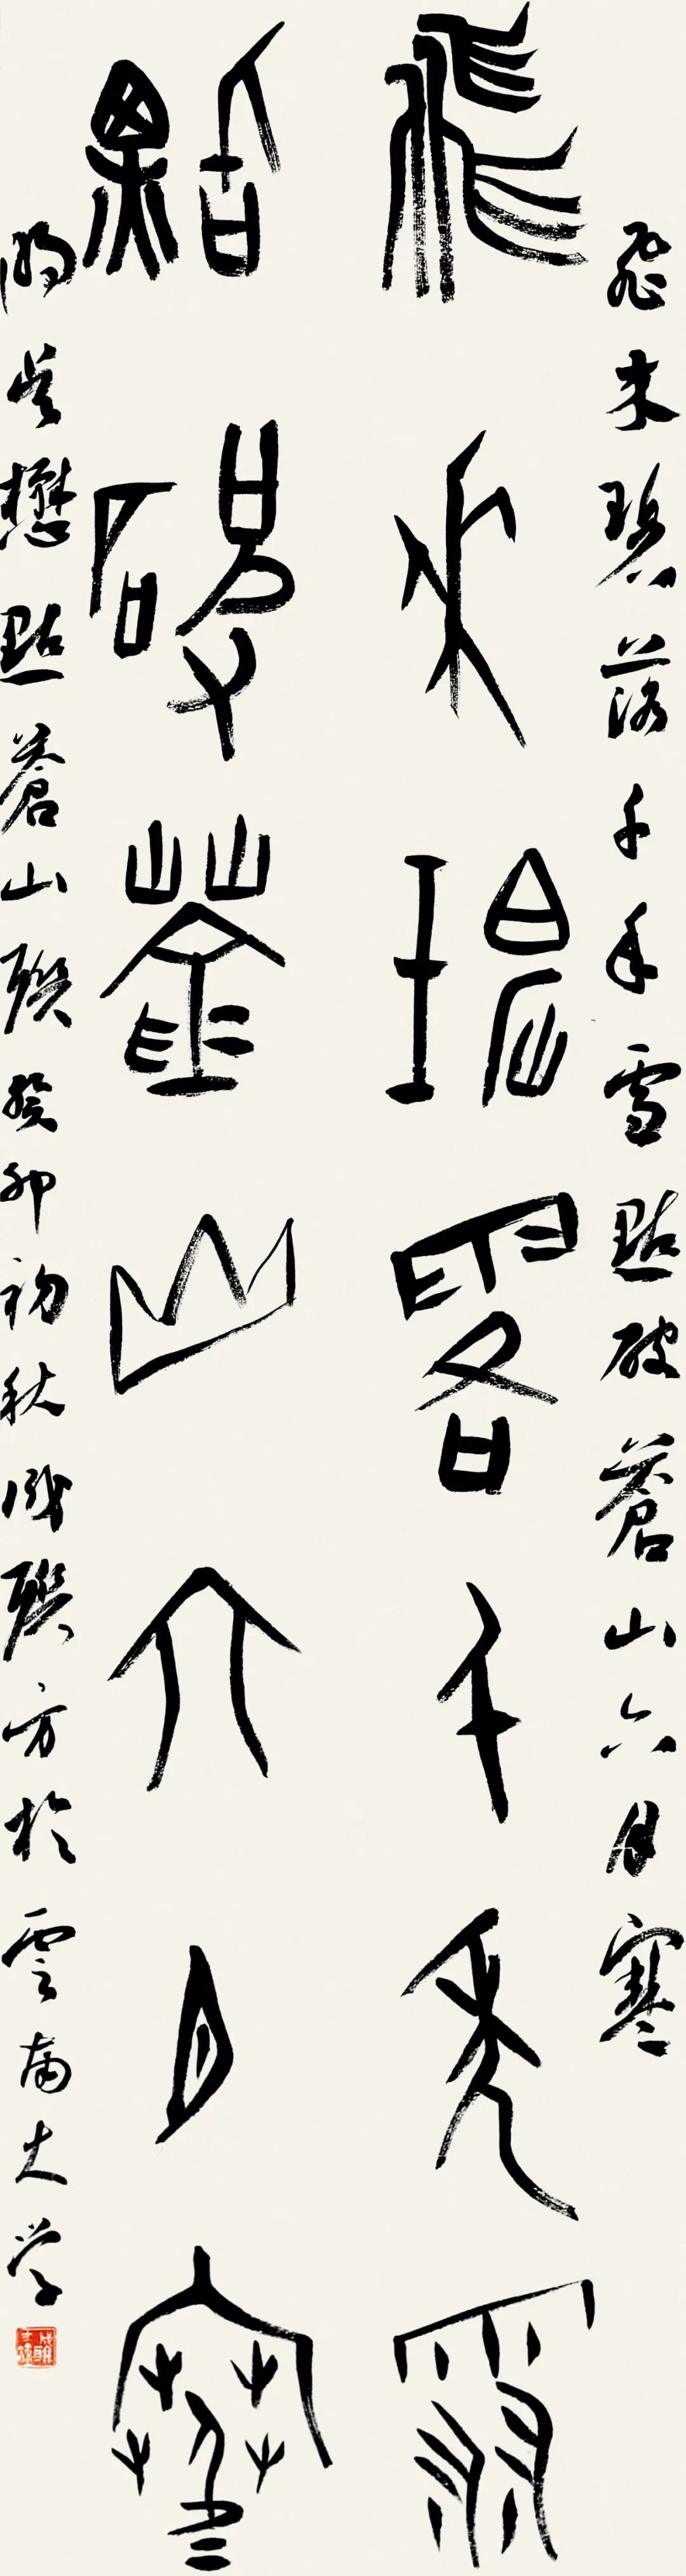 飛來碧落千年雪點破蒼山六月寒
飛來碧落千年雪
點破蒼山六月寒
明吳懋點蒼山聯癸卯初秋成聯方於雲南大學